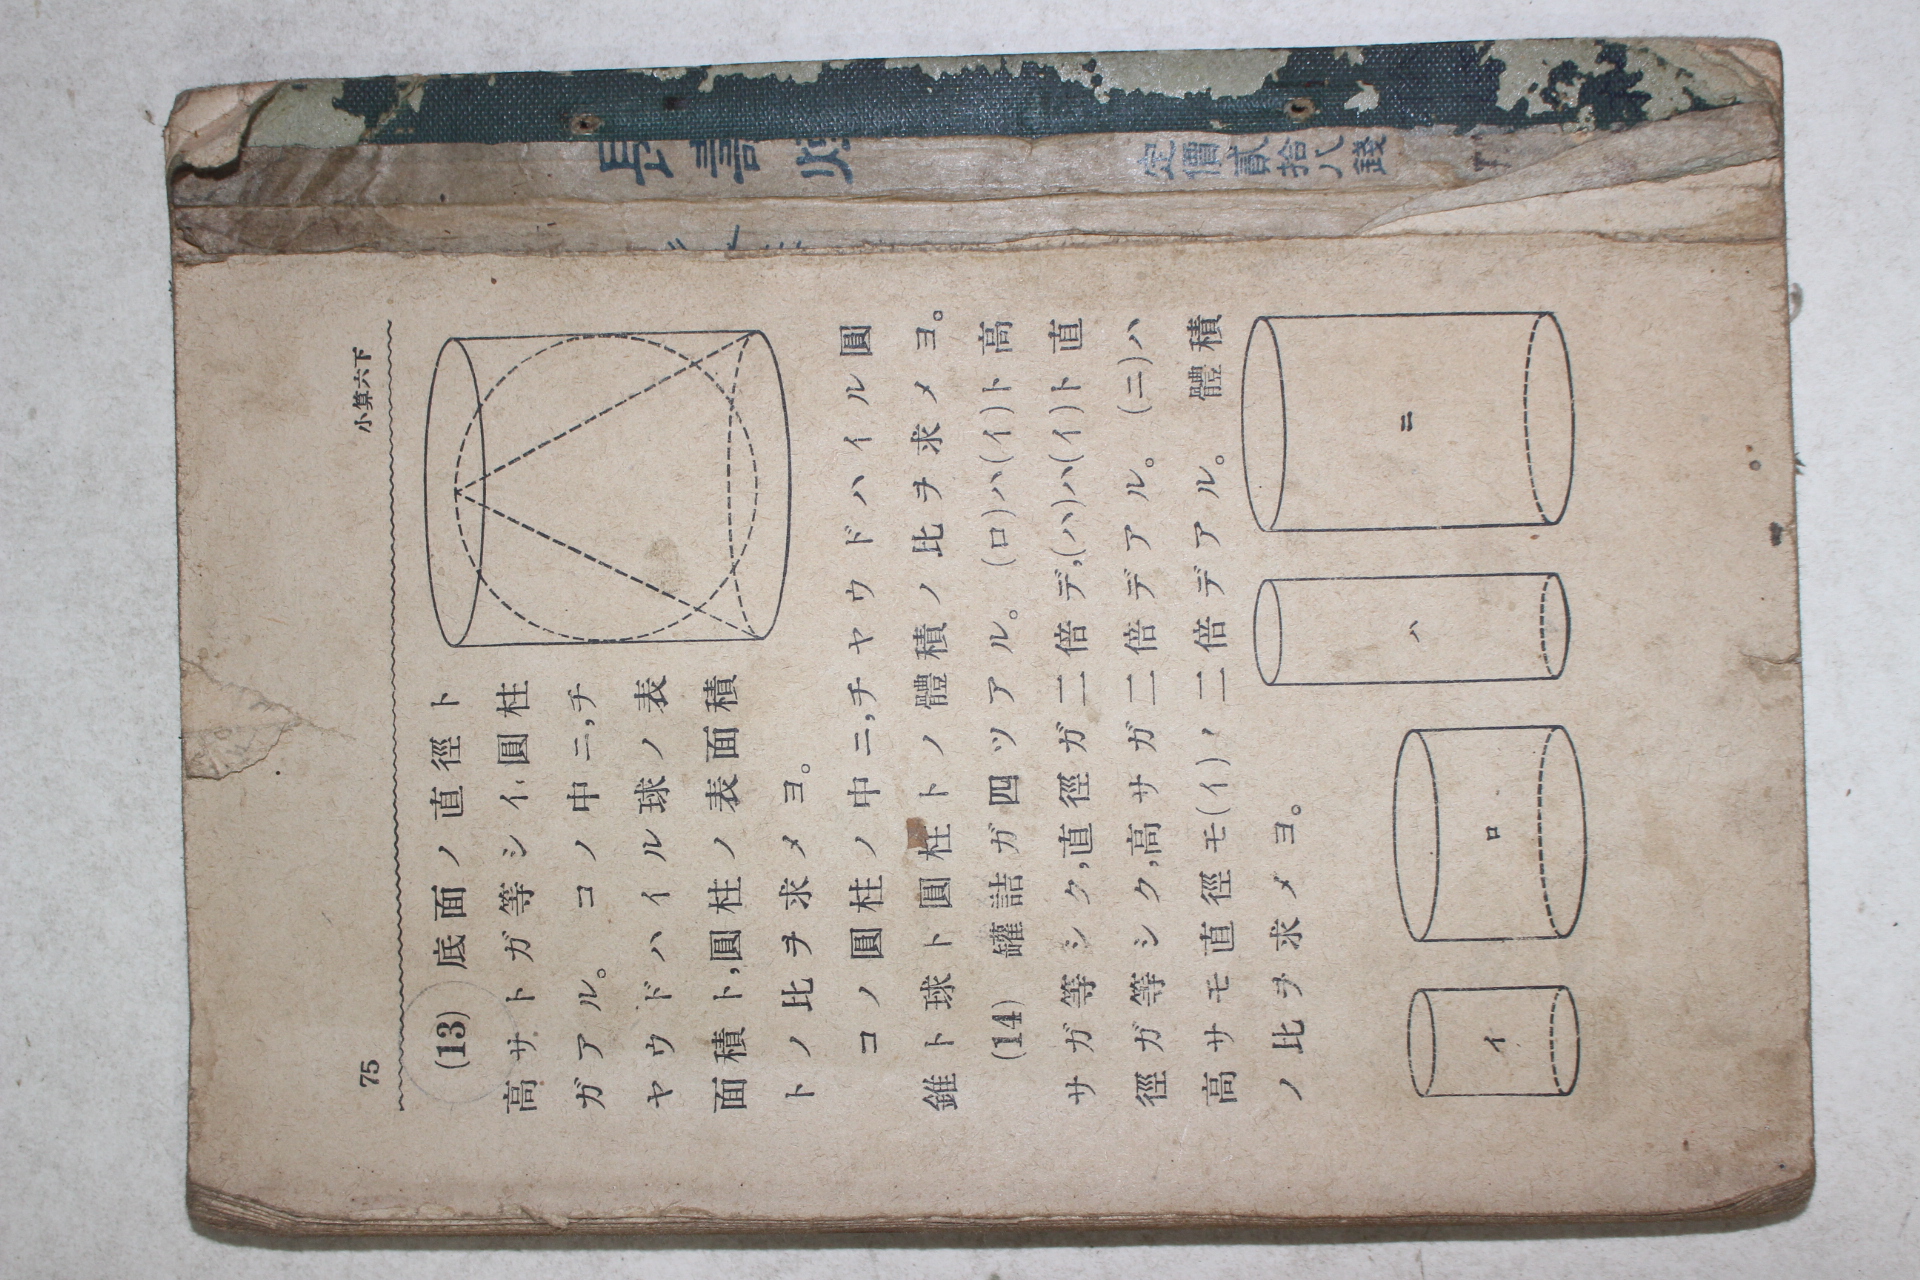 75
小算六下
(13) 底面ノ直徑ト
高サトガ等シイ圓柱
ガアル。コノ中ニ,チ
ヤウドハイル球ノ表
面積ト,圓柱ノ表面積
トノ比ヲ求メヨ。
コノ圓柱ノ中ニ,チヤウドハイル圓
錐ト球ト圓柱トノ體積ノ比ヲ求メヨ。
(14) 罐詰ガ四ツアル。(ロ)ハ(イ)ト高
サガ等シク,直徑ガ二倍デ,(ハ)ハ(イ)ト直
徑ガ等シク,高サガ二倍デアル。(ニ)ハ
高サモ直徑モ(イ)ノ二倍デアル。體積
ノ比ヲ求メヨ。
イ
ロ
ハ
ニ
長壽
定價貳拾八錢